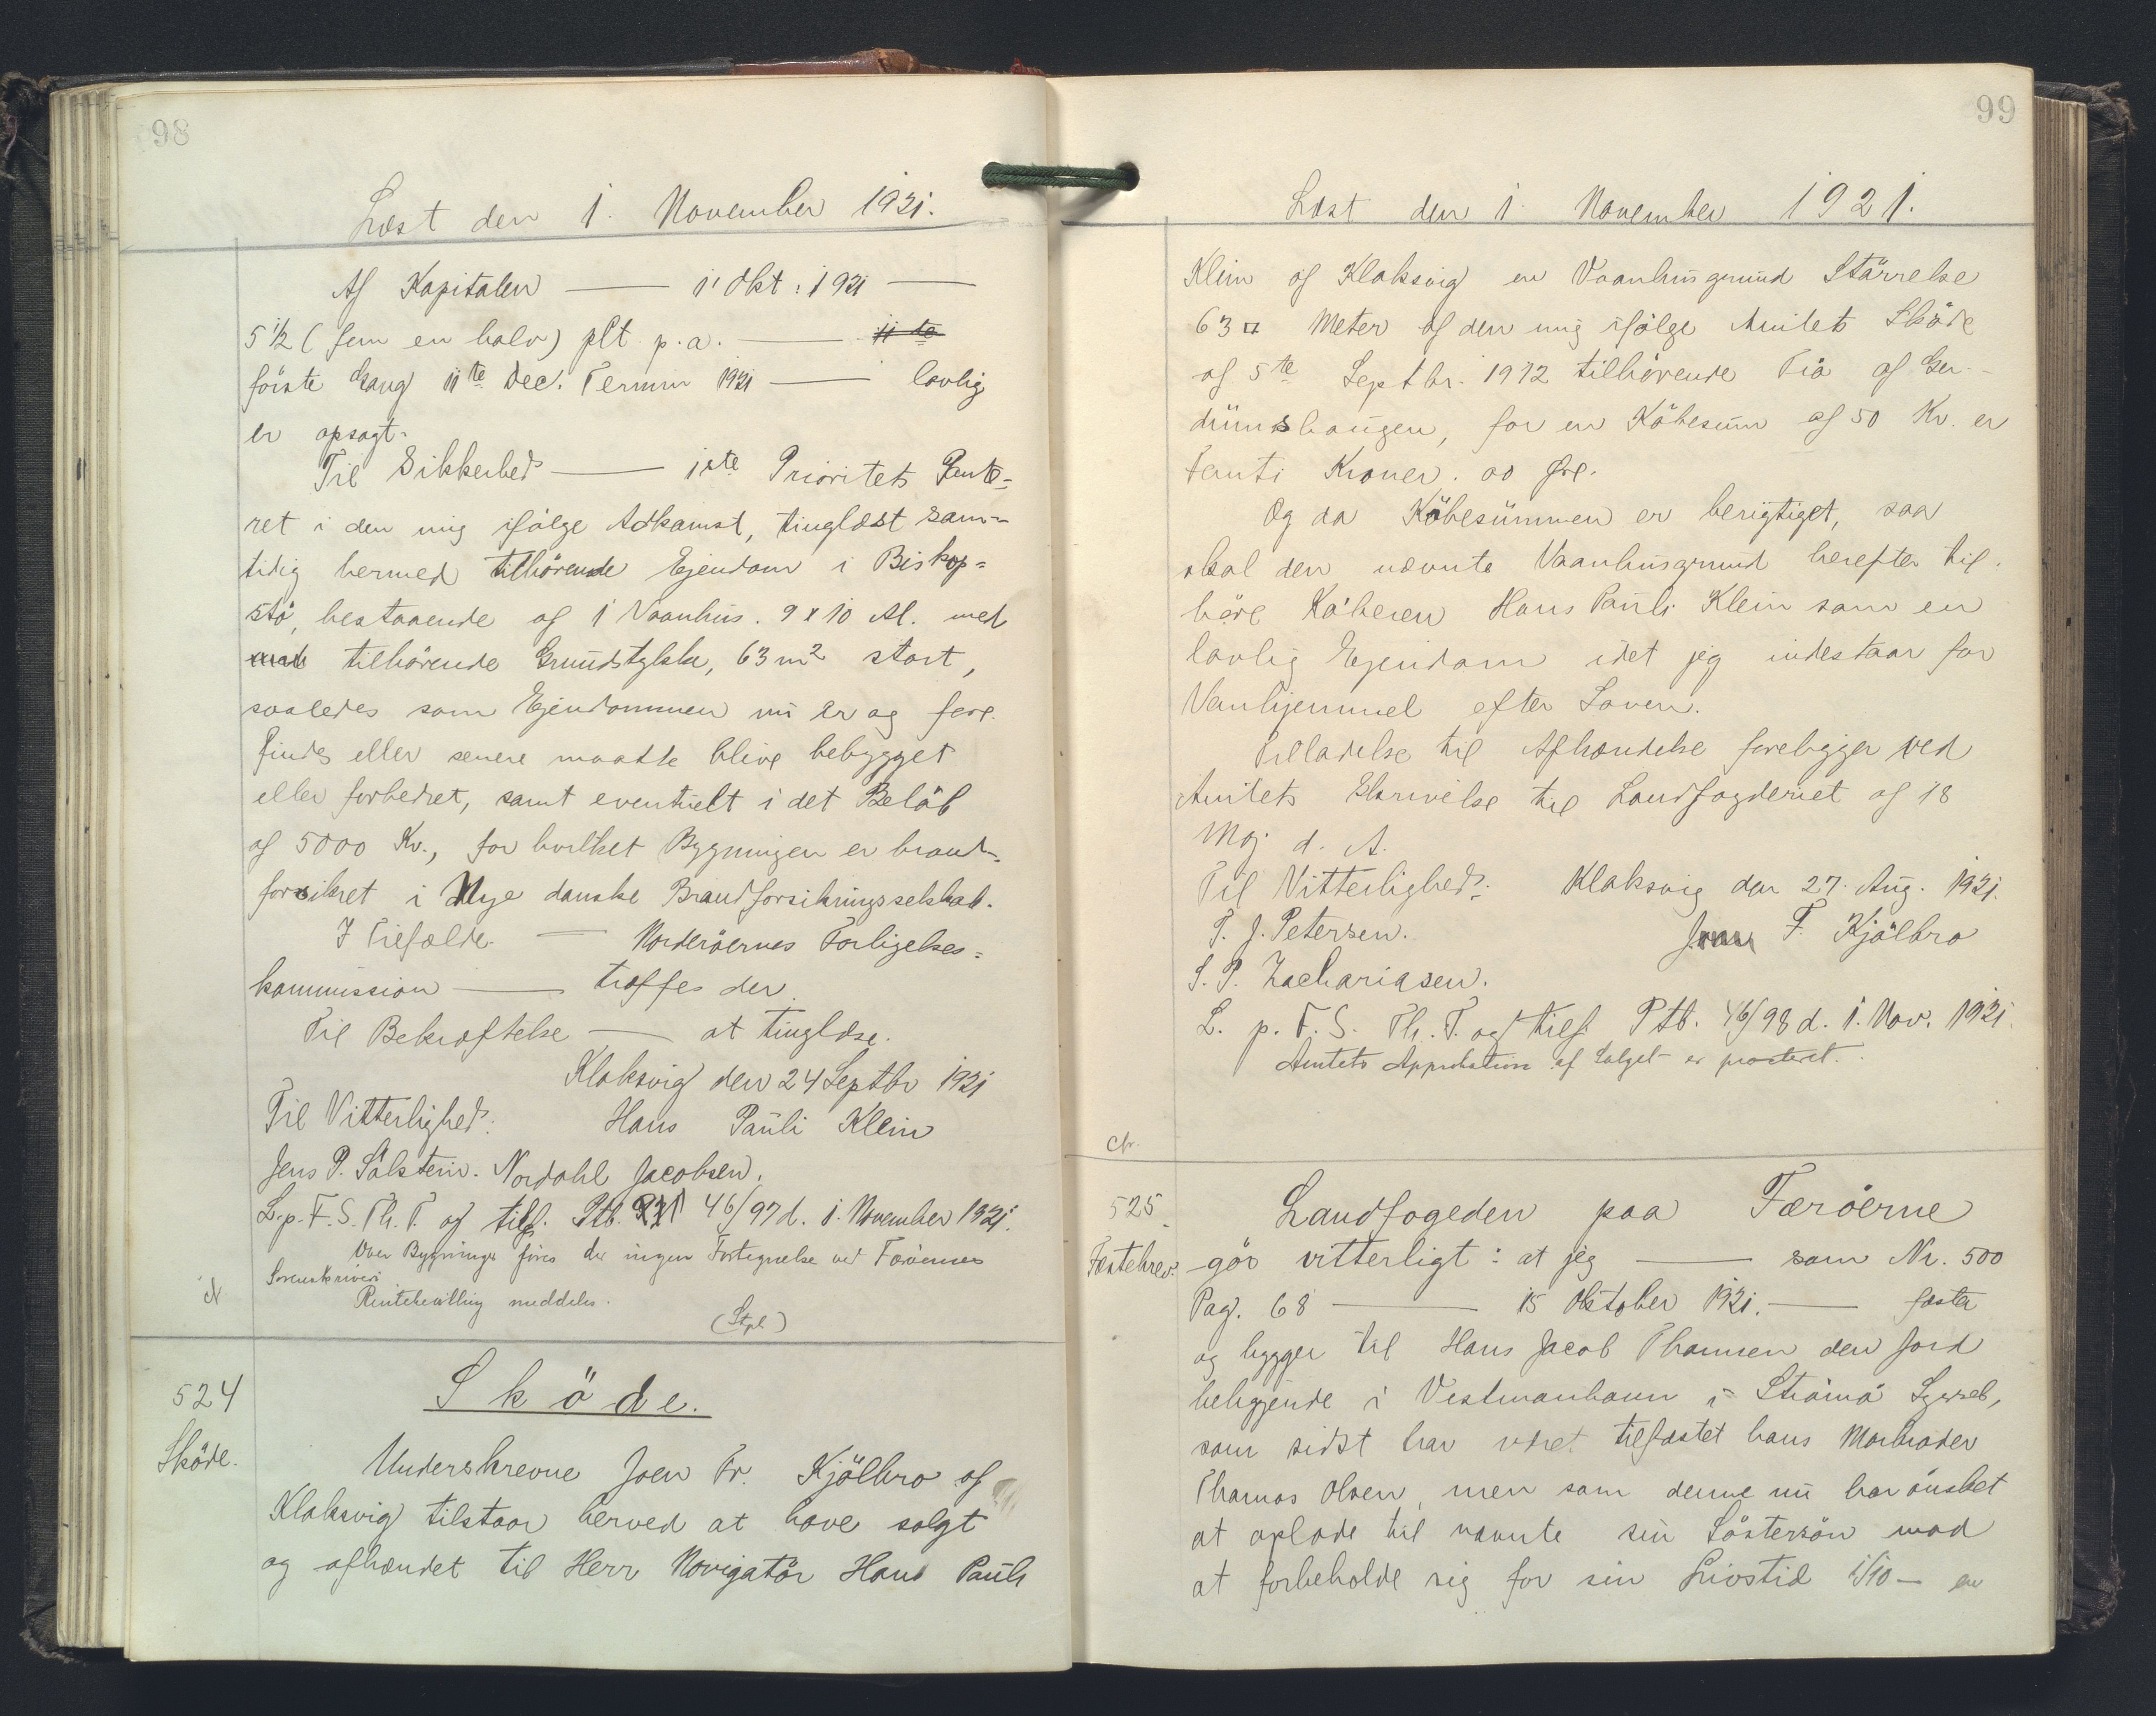 98
Læst den 1. November 1921.
Af Kapitalen — 1' Okt: 1921 —
5 1/2 (fem en halv) pCt. p.a. — 11 te
förste Gang 11te Dec. Termin 1921 — lovlig
er opsagt.
Til Sikkerhed — 1ste Prioritets Pante=
ret i den mig ifölge Adkomst, tinglæst sam=
tidig hermed tilhörende Ejendom i Biskop=
stö, bestaaende af 1 Vaanhus. 9 x 10 Al. med
tilhörende Grundstykke, 63 m2 stort,
saaledes som Ejendommen nu er og fore
findes eller senere maatte blive bebygget
eller forbedret, samt eventuelt i det Belöb
af 5000 Kr., for hvilket Bygningen er brand-
forsikret i Nye danske Brandforsikringsselskab.
I Tilfælde — Norderöernes Forligelses=
kommission — træffes der.
Til Bekræftelse — at tinglæse.
Klaksvig den 24 Septbr 1921
Til Vitterlighed: Hans Pauli Klein
Jens P. Sólstein. Nordahl Jacobsen.
L. p. F. S. Th. T. og tilf. Ptb. 46/97 d. 1. November 1921.
Over Bygninger föres der ingen Fortegnelse ved Færöernes
Sorenskriveri
Rentebevilling meddeles.
(Stpl)
524
Sköde.
Sköde.
Underskrevne Joen Fr. Kjölbro af
Klaksvig tilstaar herved at have solgt
og afhændet til Herr Navigatör Hans Pauli
99
Læst den 1. November 1921.
Klein af Klaksvig en Vaanhusgrund Störrelse
63 □ Meter af den mig ifölge Amtets Sköde
af 5te Septbr. 1912 tilhörende Trö af Ger-
dumshaugen, for en Köbesum af 50 Kr. er
femti Kroner. 00 Øre.
Og da Köbesummen er berigtiget, saa
skal den nævnte Vaanhusgrund herefter til.
höre Köberen Hans Pauli Klein som en
lovlig Ejendom idet jeg indestaar for
Vanhjemmel efter Loven.
Tilladelse til Afhændelse foreligger ved
Amtets Skrivelse til Landfogderiet af 18
Maj d. A.
Til Vitterlighed: Klaksvig den 27. Aug. 1921.
T. J. Petersen. Joen F. Kjölbro
S. P. Zachariasen.
L. p. F. S. Th. T. og tilf. Ptb. 46/98 d. 1. Nov. 1921.
Amtets Approbation af Salget er præsteret.
525.
Fæstebrev.
Landfogeden paa Færöerne
gör vitterligt: at jeg — som Nr. 500
Pag. 68 — 15 Oktober 1921. — fæster
og bygger til Hans Jacob Thomsen den Jord
beliggende i Vestmanhavn i Strömö Syssel,
som sidst har været tilfæstet hans Morbroder
Thomas Olsen, men som denne nu har önsket
at oplade til nævnte sin Söstersön mod
at forbeholde sig for sin Livstid 1/10 — en